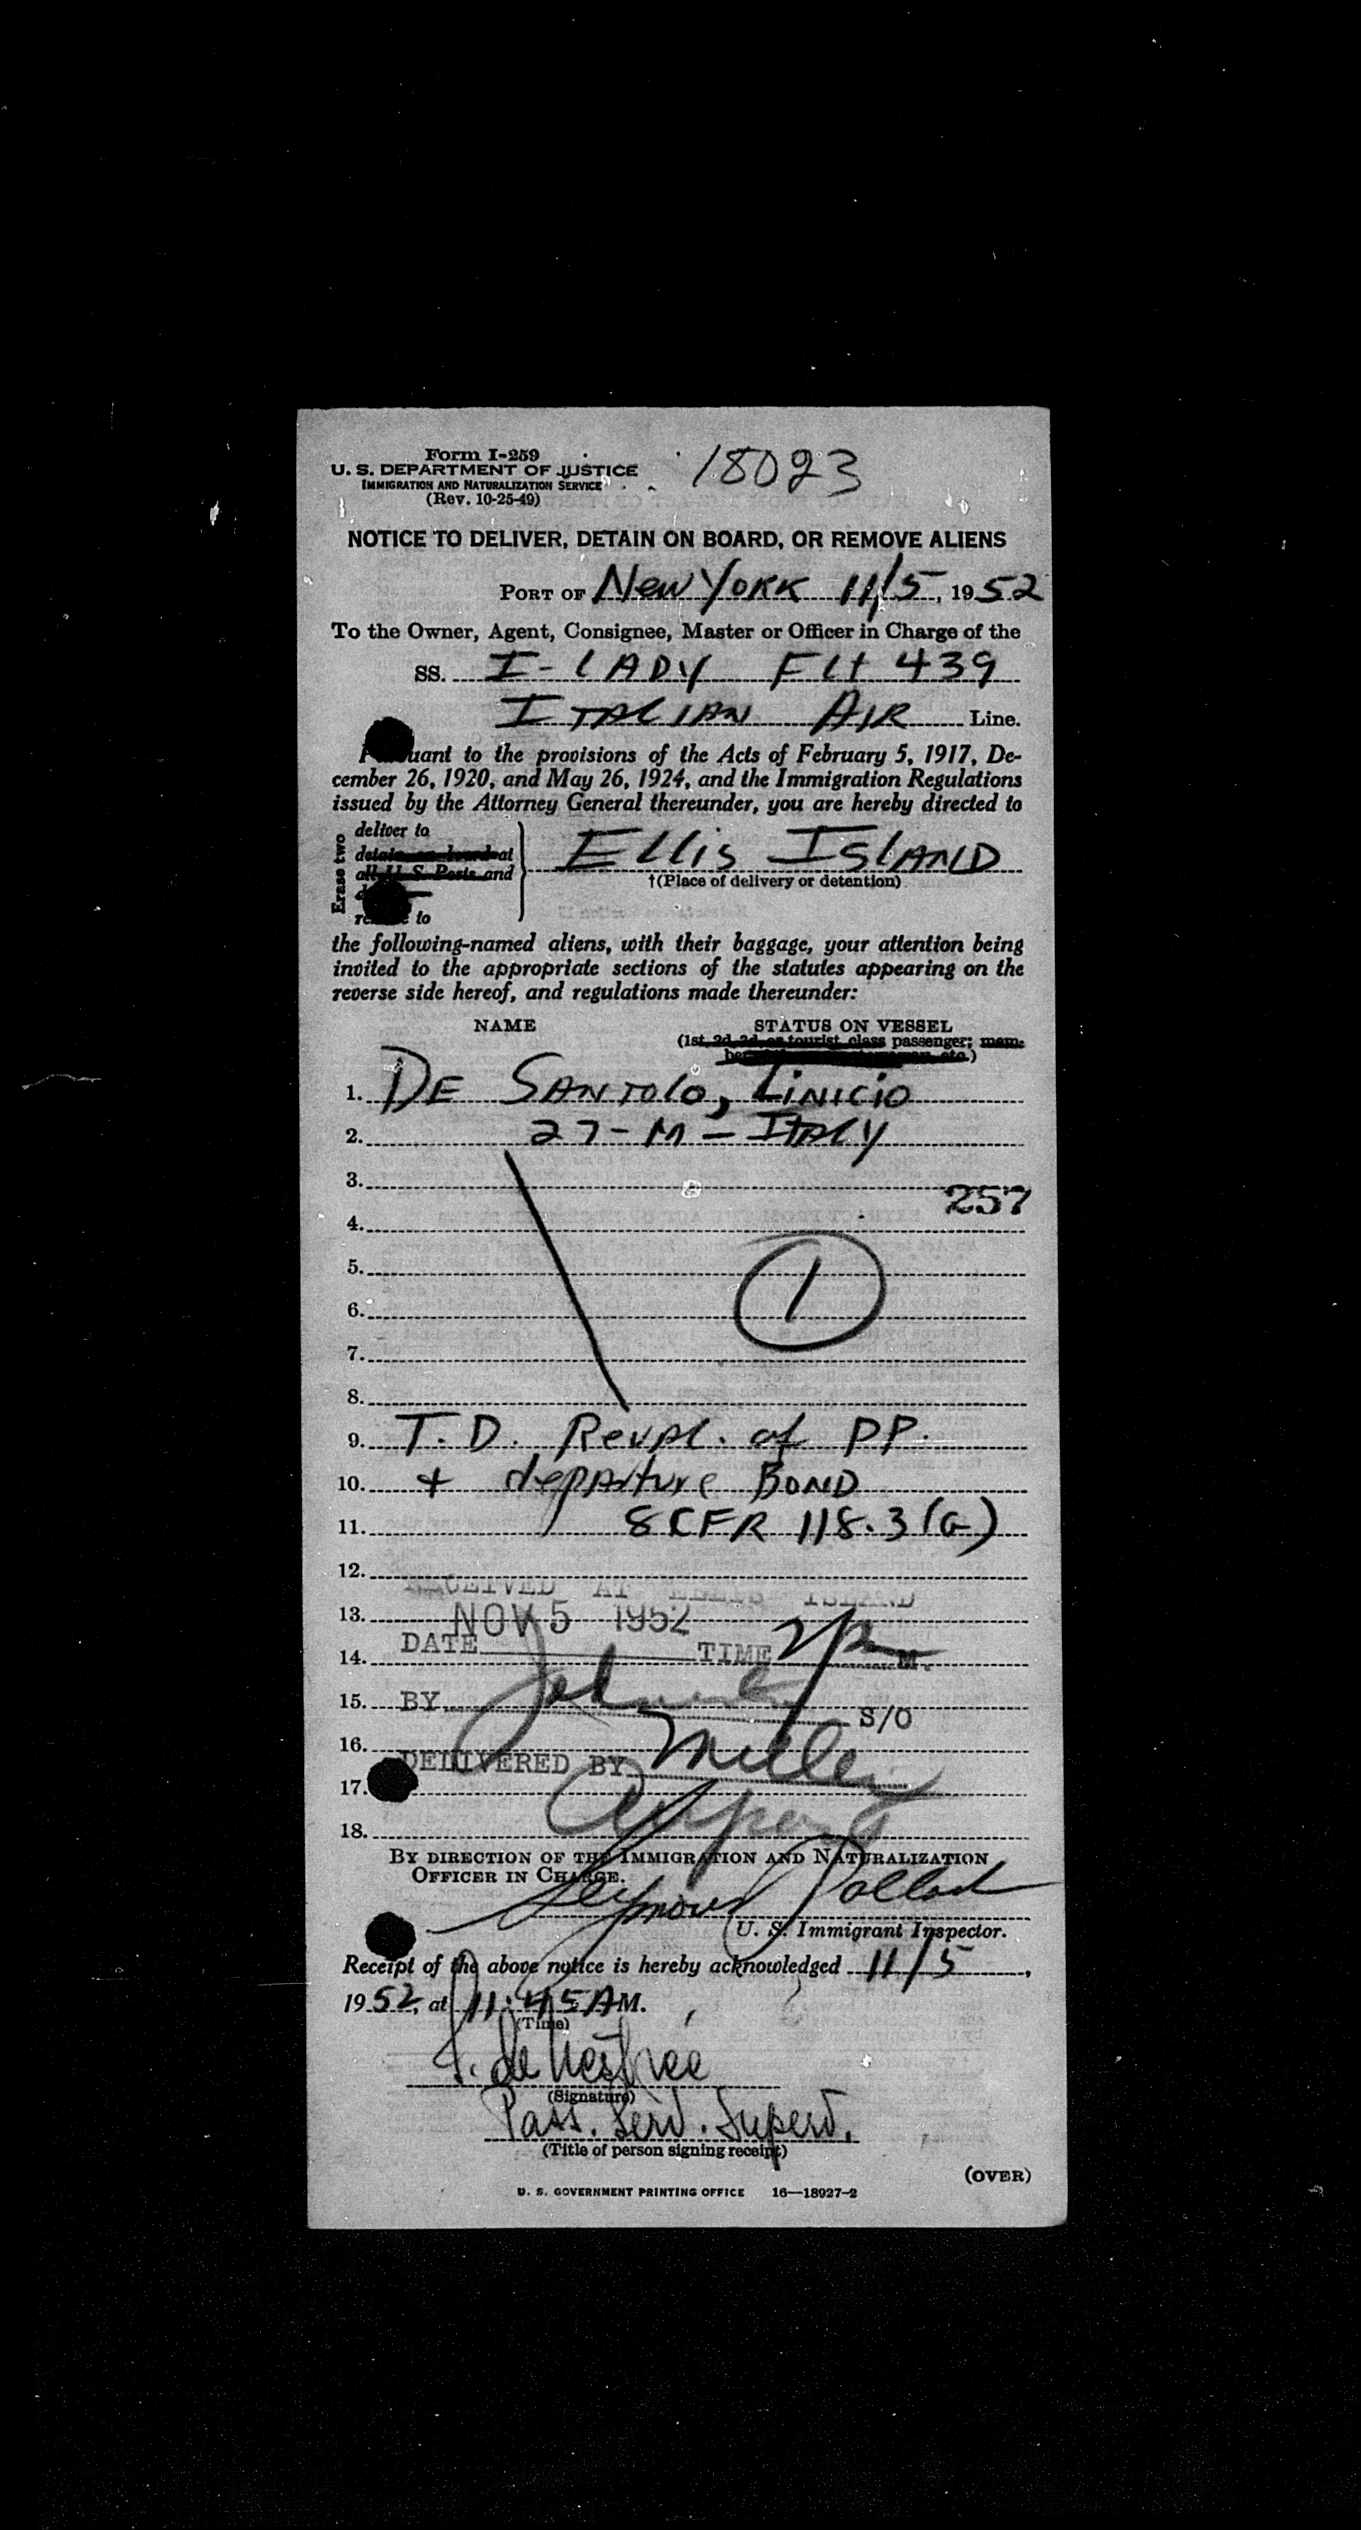 Form I-259
18023
U. S. DEPARTMENT OF JUSTICE
IMMIGRATION AND NATURALIZATION SERVICE
(Rev. 10-25-49)
NOTICE TO DELIVER, DETAIN ON BOARD, OR REMOVE ALIENS
PORT OF New York 11/5, 1952
To the Owner, Agent, Consignee, Master or Officer in Charge of the
SS. I-LADY FLt 439
ITALIAN AIR Line.
Pursuant to the provisions of the Acts of February 5, 1917, De-
cember 26, 1920, and May 26, 1924, and the Immigration Regulations
issued by the Attorney General thereunder, you are hereby directed to
Erase two
deliver to
detain on board at
all U. S. Ports and
to
Ellis Island
†(Place of delivery or detention)
the following-named aliens, with their baggage, your attention being
invited to the appropriate sections of the statutes appearing on the
reverse side hereof, and regulations made thereunder:
NAME STATUS ON VESSEL
(1st, 2d, 3d, or tourist class passenger; mem-
etc.)
1. DE SANTOLO, LINICIO
2. 27-M-ITALY
3.
257
4.
5.
1
6.
7.
8.
9. T.D. Revpl. of PP.
10. + departure BOND
11. 8 CFR 118.3(G)
12.
RECEIVED AT ELLIS ISLAND
13. NOV 5 1952
DATE TIME M.
14.
15. BY S/O
16.
DELIVERED BY Miller
17.
18.
BY DIRECTION OF THE IMMIGRATION AND NATURALIZATION
OFFICER IN CHARGE.
Seymour Pollack
U. S. Immigrant Inspector.
Receipt of the above notice is hereby acknowledged 11/5,
1952, at 11:45 AM.
(Time)
(Signature)
Pass. Serv. Superv.
(Title of person signing receipt)
(OVER)
U. S. GOVERNMENT PRINTING OFFICE 16—18927-2